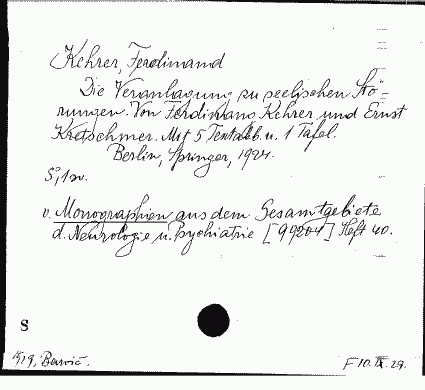 Kehrer, Ferdinand
Die Veranlagung zu seelischen Stö=
rungen. Von Ferdinand Kehrer und Ernst
Kretschmer. Mit 5 Textabb. u. 1 Tafel.
Berlin, Springer, 1924.
v. Monographien aus dem Gesamtgebiete
d. Neurologie u. Psychiatrie [99204] Heft 40.
S
F 10. IX. 29.